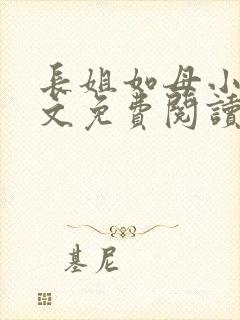 長姐如母小
文免費閱讀
基尼